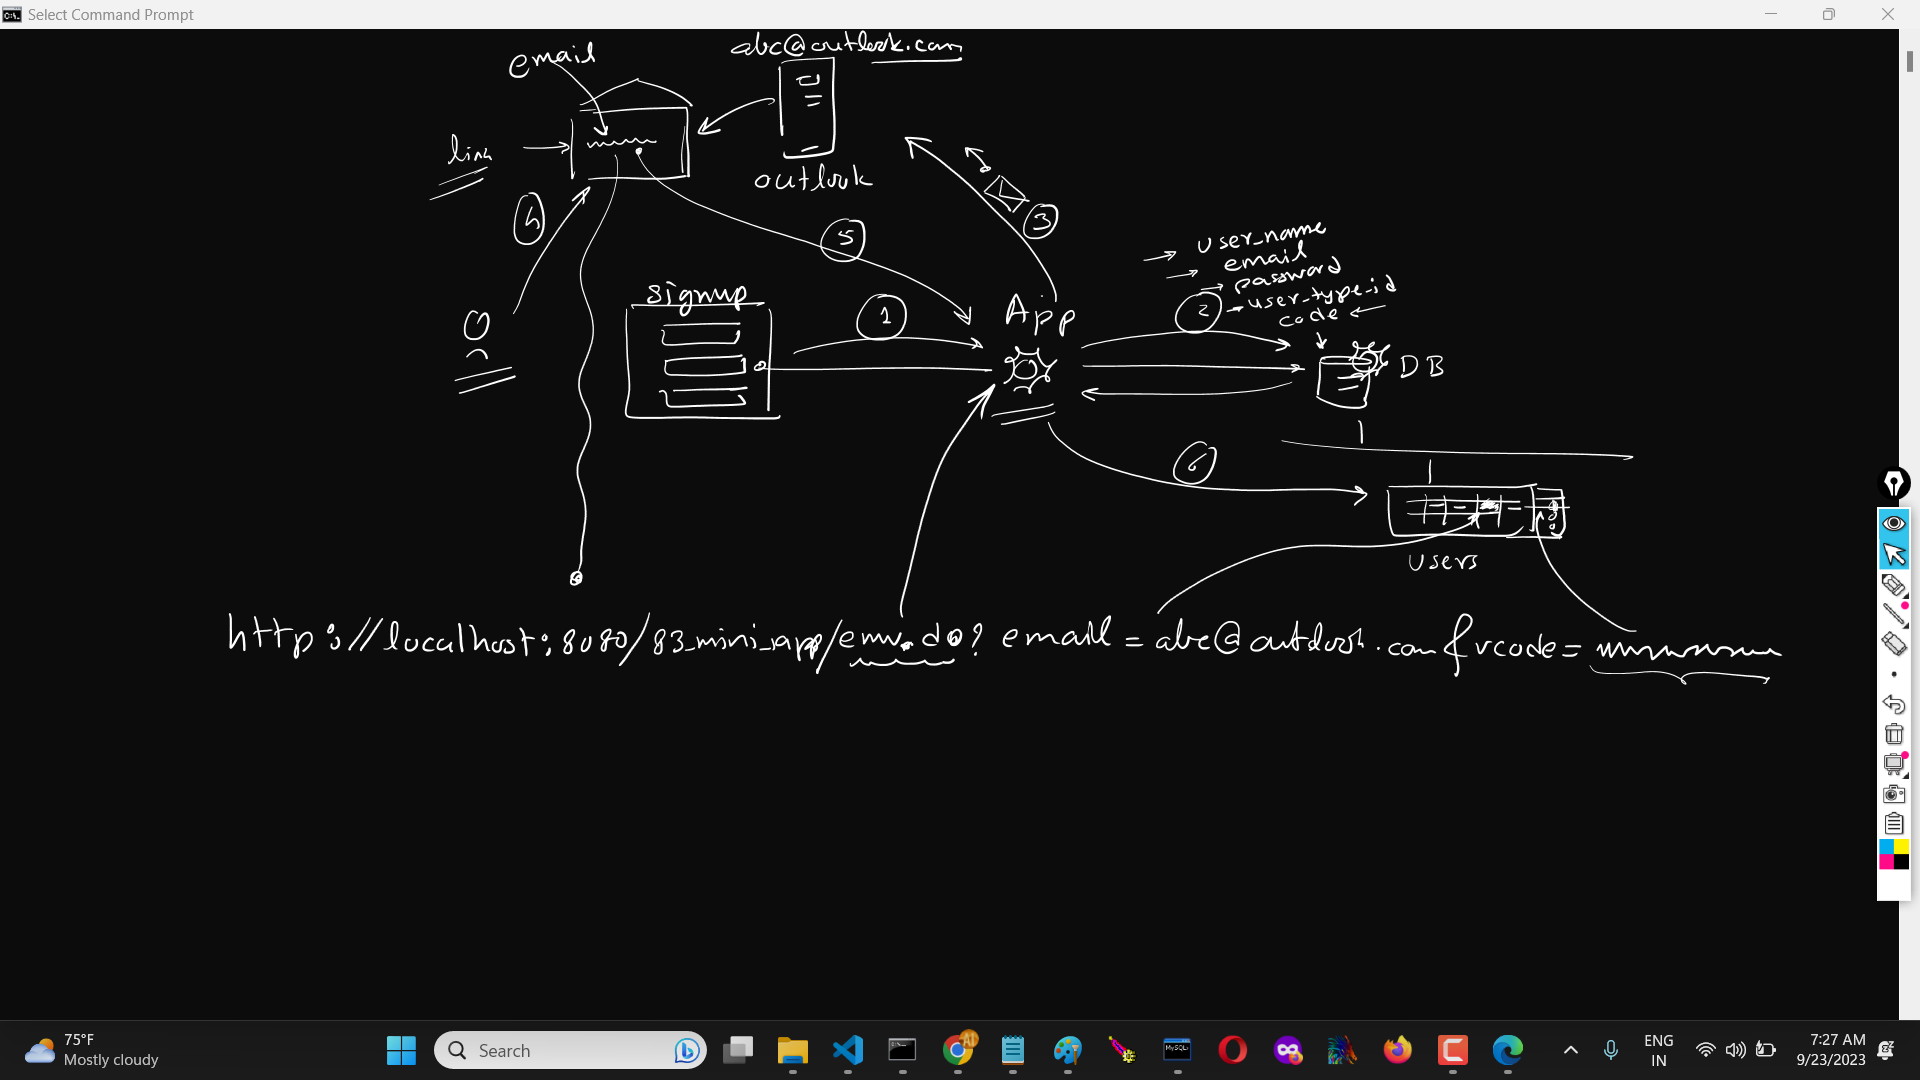 Select Command Prompt
email
abc@outlook.com
link
outlook
4
5
3
user_name
email
password
user_type_id
code
signup
1
App
2
DB
6
users
http://localhost:8080/83_mini_app/emv.do? email=abc@outlook.com&vcode=
75°F
Mostly cloudy
Search
ENG
IN
7:27 AM
9/23/2023